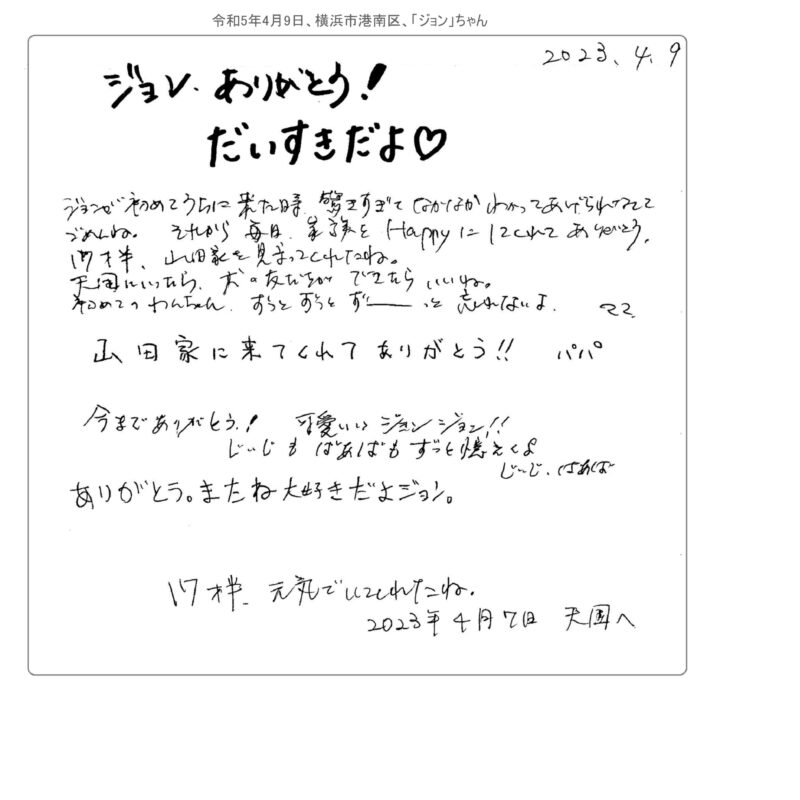 令和5年4月9日、横浜市港南区、「ジョン」ちゃん
2023、4、9
ジョン、ありがとう!
だいすきだよ♡
ジョンが初めてうちに来た時、驚きすぎて なかなか わかってあげられなくて
ごめんね。 それから 毎日、家族を Happyに してくれて ありがとう。
17才半、山田家を見守ってくれたね。
天国にいったら、犬の友だちが できたら いいね。
初めてのわんちゃん、ずっと ずっと ずーーっと 忘れないよ。 ママ
山田家に来てくれて ありがとう!! パパ
今までありがとう! 可愛いい ジョンジョン!!
じいじも ばあばも ずっと憶えてるよ
じいじ、ばあば
ありがとう。またね大好きだよジョン。
17才半、元気でいてくれたね。
2023年4月7日 天国へ